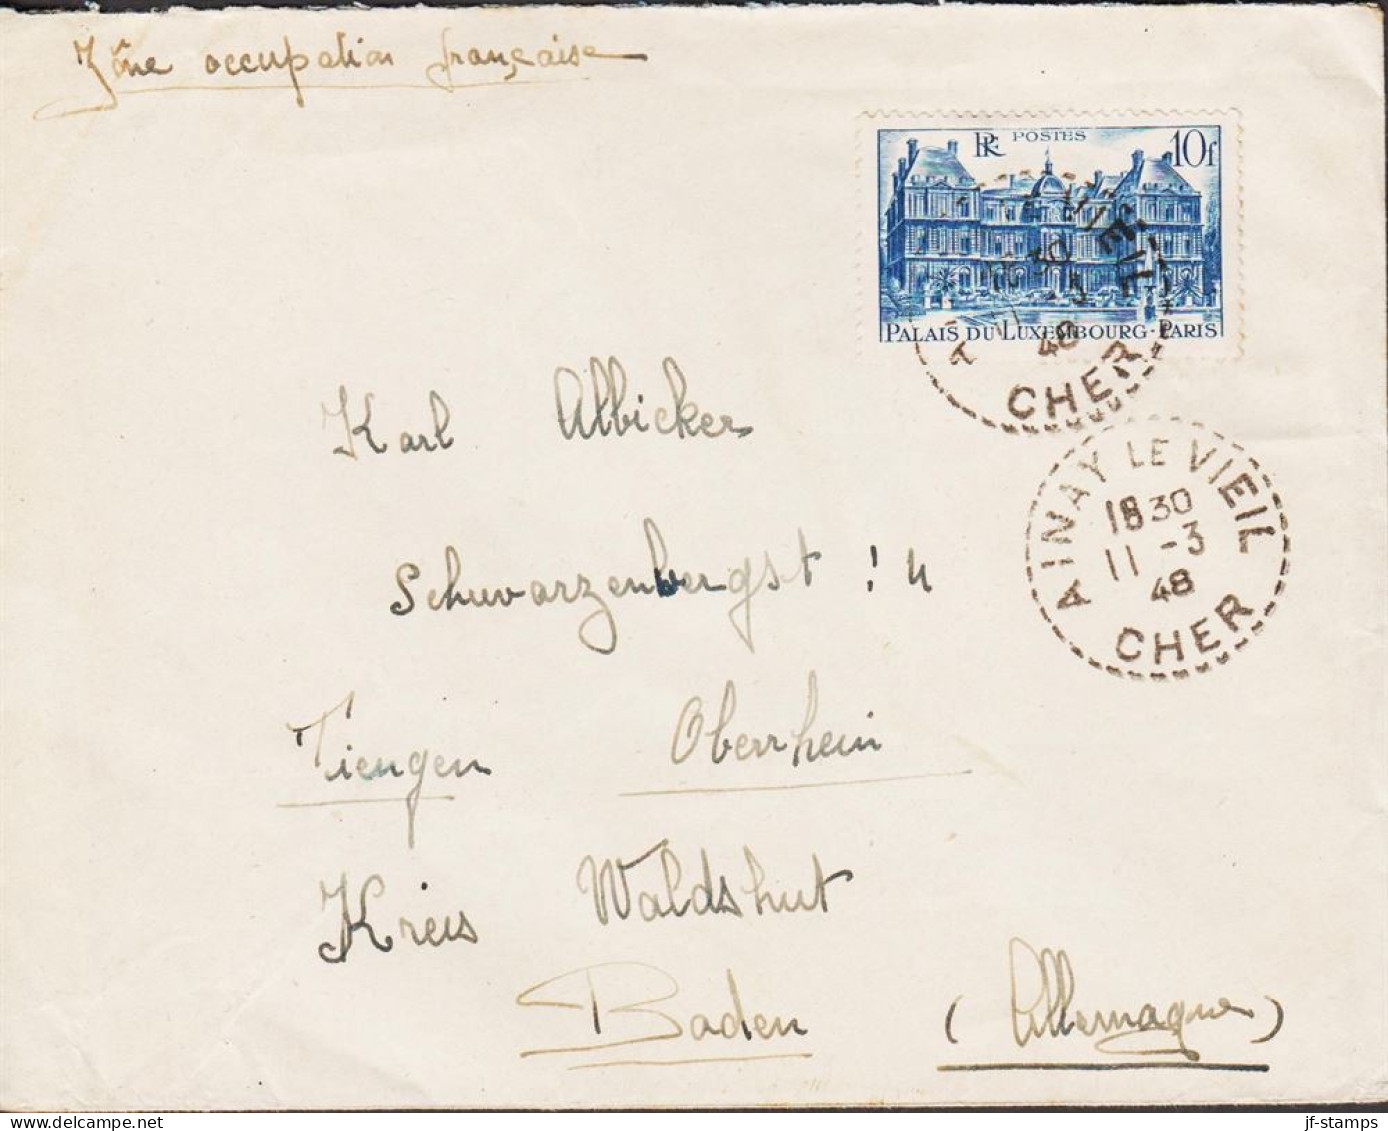 Zône occupation française
RF POSTES 10f
PALAIS DU LUXEMBOURG-PARIS
VIEIL
30
48
CHER
AINAY LE VIEIL
18 30
11 -3
48
CHER
Karl Albicker
Schwarzenbergst : 4
Tiengen Oberrhein
Kreis Waldshut
Baden (Allemagne)
jf-stamps